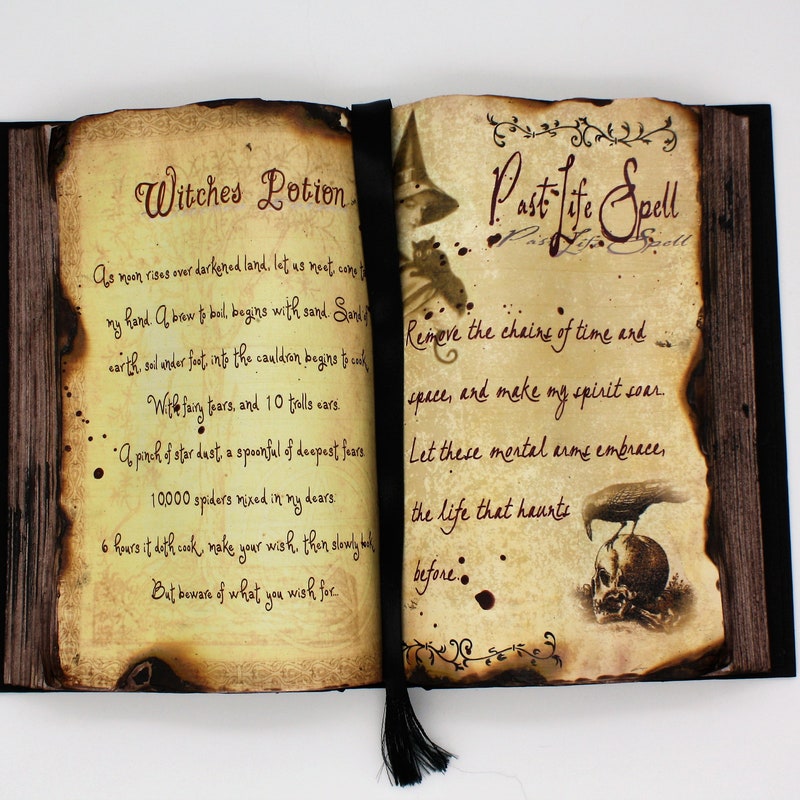 Witches Potion
As moon rises over darkened land, let us meet, come
my hand. A brew to boil, begins with sand. Sand of
earth, soil under foot, into the cauldron begins to cook,
With fairy tears, and 10 trolls ears.
A pinch of star dust, a spoonful of deepest fears.
10,000 spiders mixed in my dears.
6 hours it doth cook, make your wish, then slowly
But beware of what you wish for...
Past Life Spell
Past Life Spell
Remove the chains of time and
space, and make my spirit soar.
Let these mortal arms embrace,
the life that haunts
before..